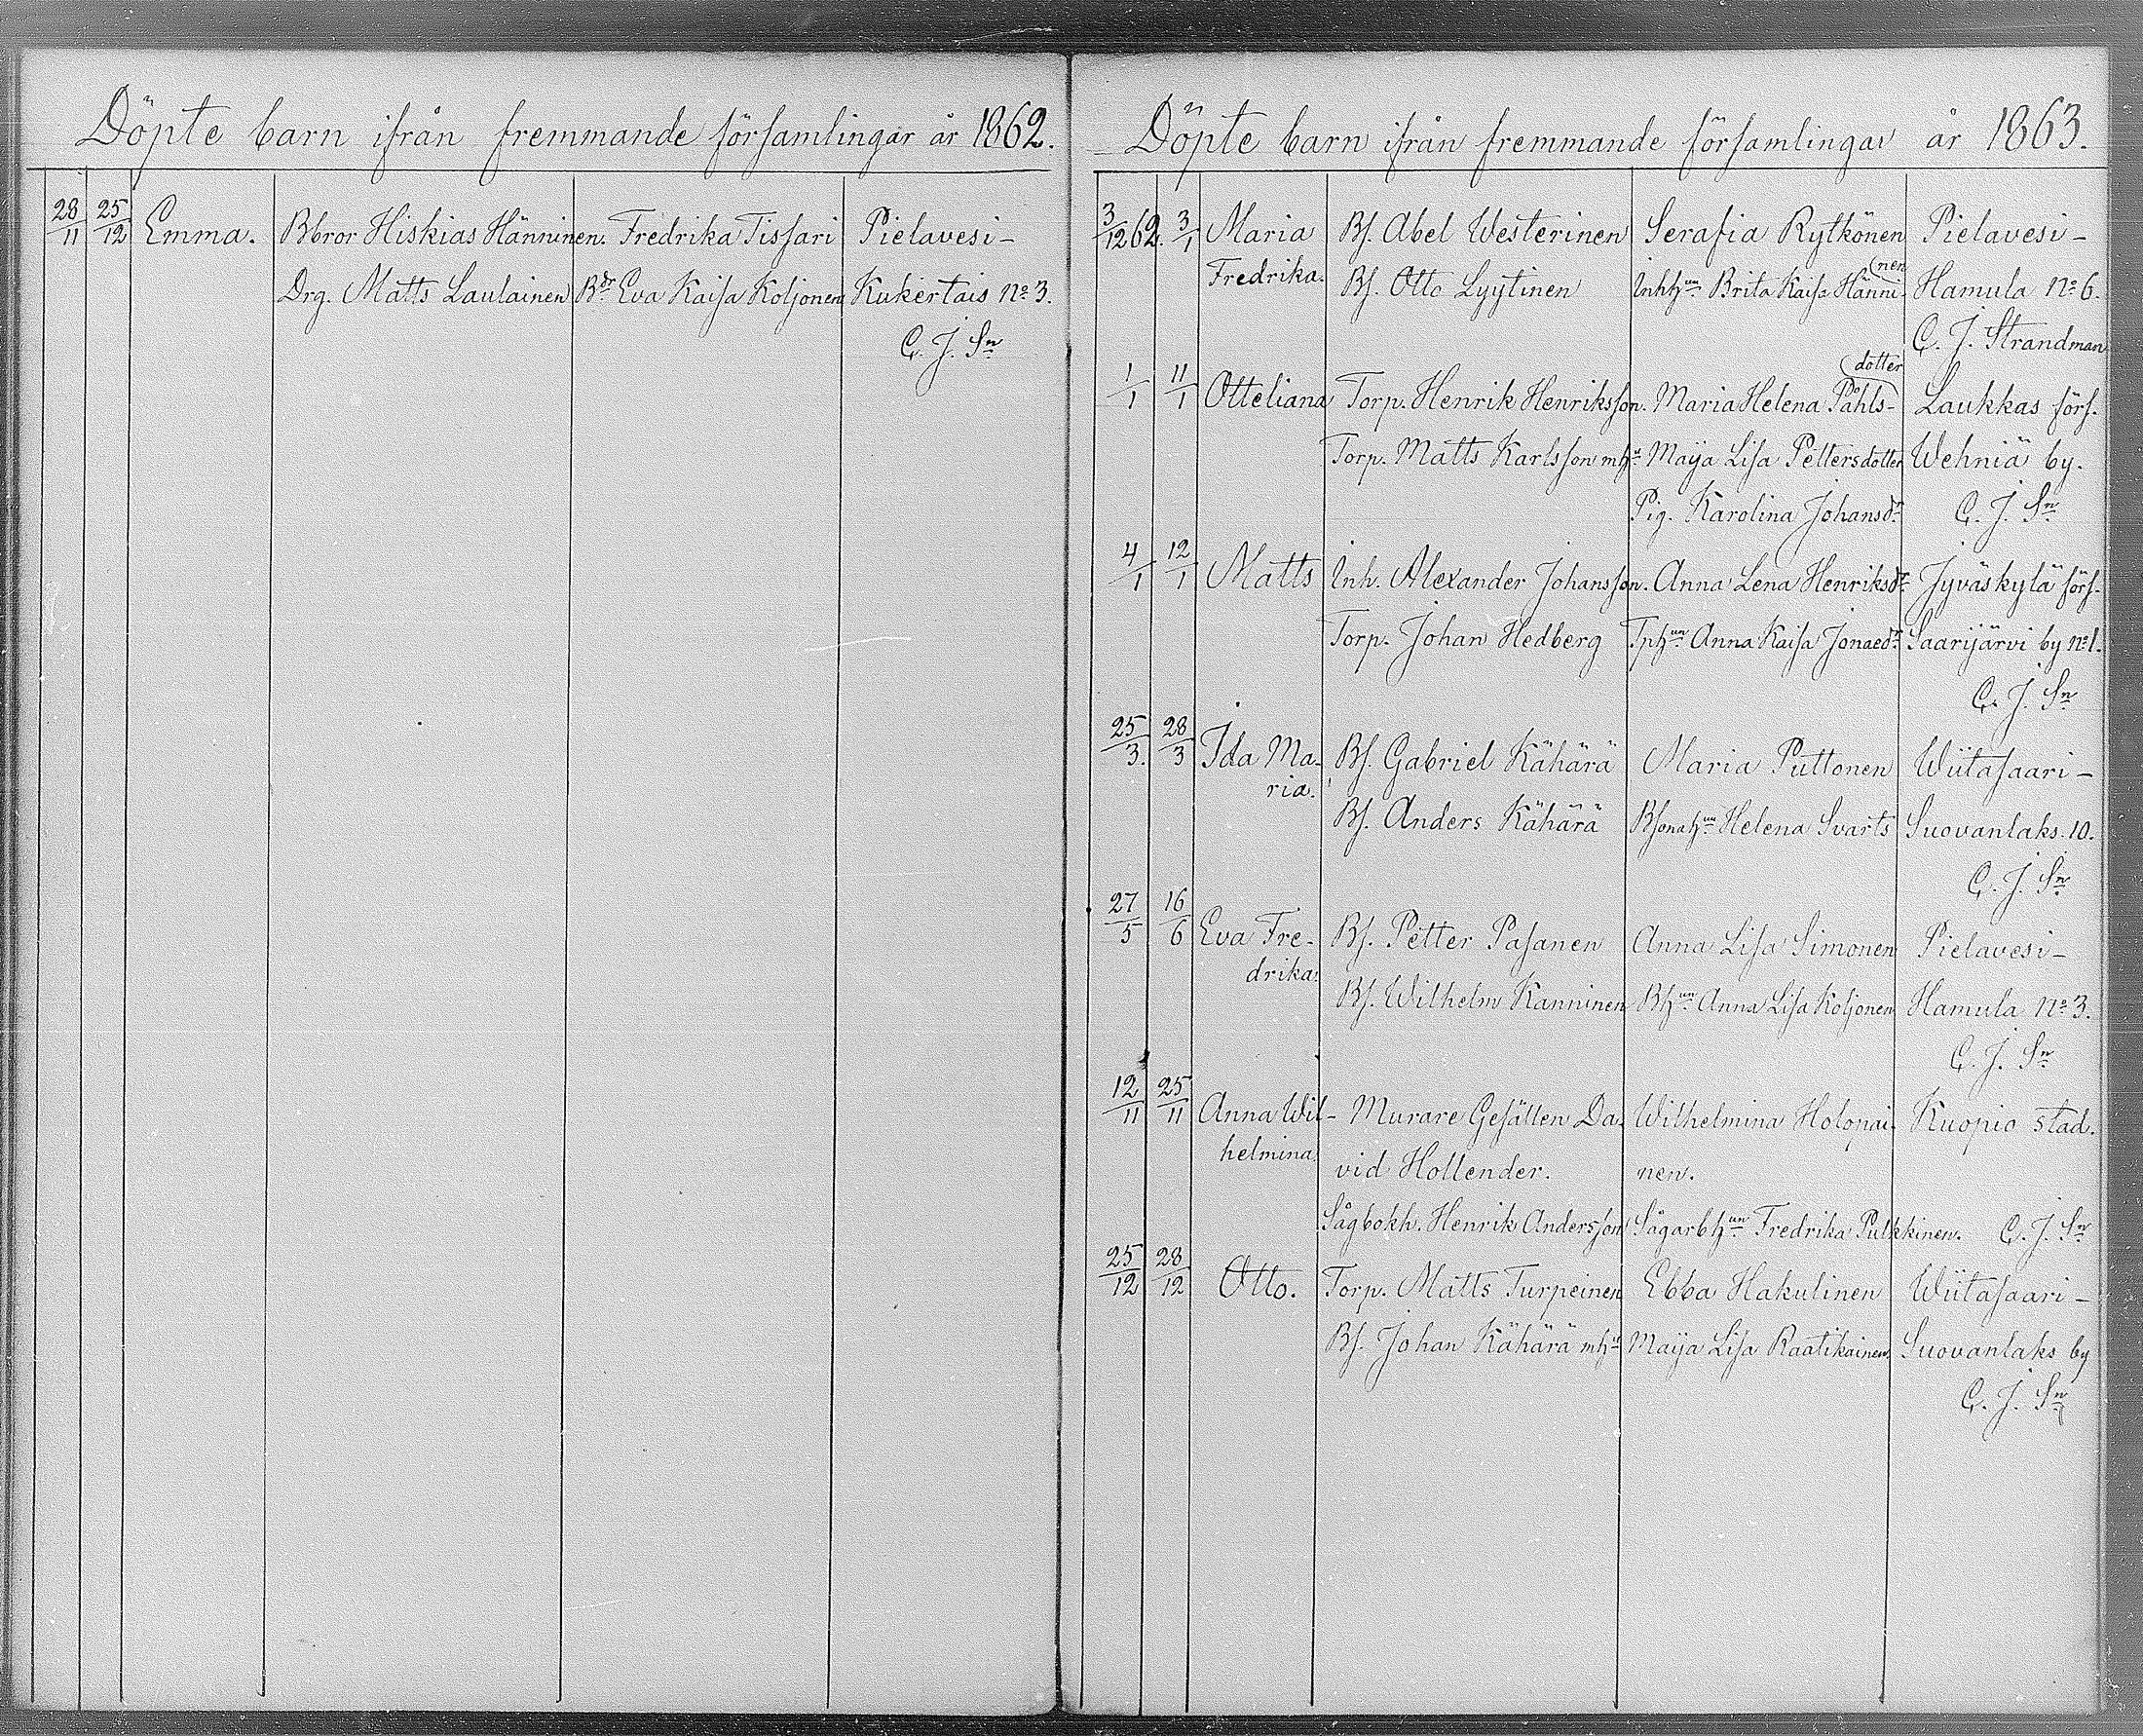 Döpte barn ifrån fremmande församlingar år 1862.
28/11 25/12 Emma. Bbror Hiskias Hänninen. Fredrika Tissari Pielavesi-
Drg. Matts Laulainen Bdr Eva Kaisa Koljonen Kukertais No 3.
C. J. Sn
Döpte barn ifrån fremmande församlingar år 1863.
3/12 62. 3/1 Maria Bs. Abel Westerinen Serafia Rytkönen Pielavesi-
Fredrika. Bs. Otto Lyytinen Inhhun Brita Kaisa Hänninen Hamula No 6.
C. J. Strandman
1/1 11/1 Otteliana Torp. Henrik Henriksson. Maria Helena Påhlsdotter Laukkas förs.
Torp. Matts Karlsson mhu Maija Lisa Pettersdotter Wehniä by.
Pig. Karolina Johansdr C. J. Sn
4/1 12/1 Matts Inh. Alexander Johansson. Anna Lena Henriksdr Jyväskylä förs.
Torp. Johan Hedberg Tphun Anna Kaisa Jonaedr Saarijärvi by No 1.
C. J. Sn
25/3. 28/3 Ida Ma- Bs. Gabriel Kähärä Maria Puttonen Wiitasaari-
ria. Bs. Anders Kähärä Bsonahun Helena Svarts Suovanlaks. 10.
C. J. Sn
27/5 16/6 Eva Fre- Bs. Petter Pasanen Anna Lisa Simonen Pielavesi-
drika. Bs. Wilhelm Kanninen Bhun Anna Lisa Koljonen Hamula No 3.
C. J. Sn
12/11 25/11 Anna Wil- Murare Gesällen Da- Wilhelmina Holopai- Kuopio stad.
helmina. vid Hollender. nen.
Sågbokh. Henrik Andersson Sågarbhun Fredrika Pulkkinen. C. J. Sn
25/12 28/12 Otto. Torp. Matts Turpeinen Ebba Hakulinen Wiitasaari-
Bs. Johan Kähärä mhu Maija Lisa Raatikainen. Suovanlaks by
C. J. Sn